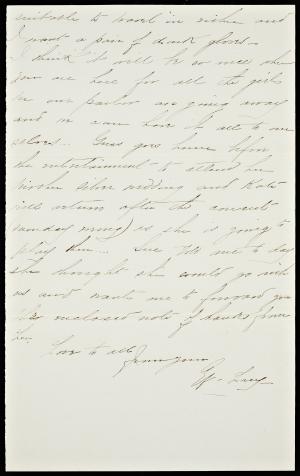 suitable to travel in either and
I want a pair of dark gloves.
I think it will be so nice when
you are here for all the girls
in our parlor are going away
and we can have it all to our
selves... Grace goes home before
the entertainment to attend her
brother silver wedding and Kate
will return after the concert
Sunday morning as she is going to
play then... Sue told me to day
she thought she would go with
us and wants me to forward you
the enclosed note of thanks from
her.
Love to all
from your